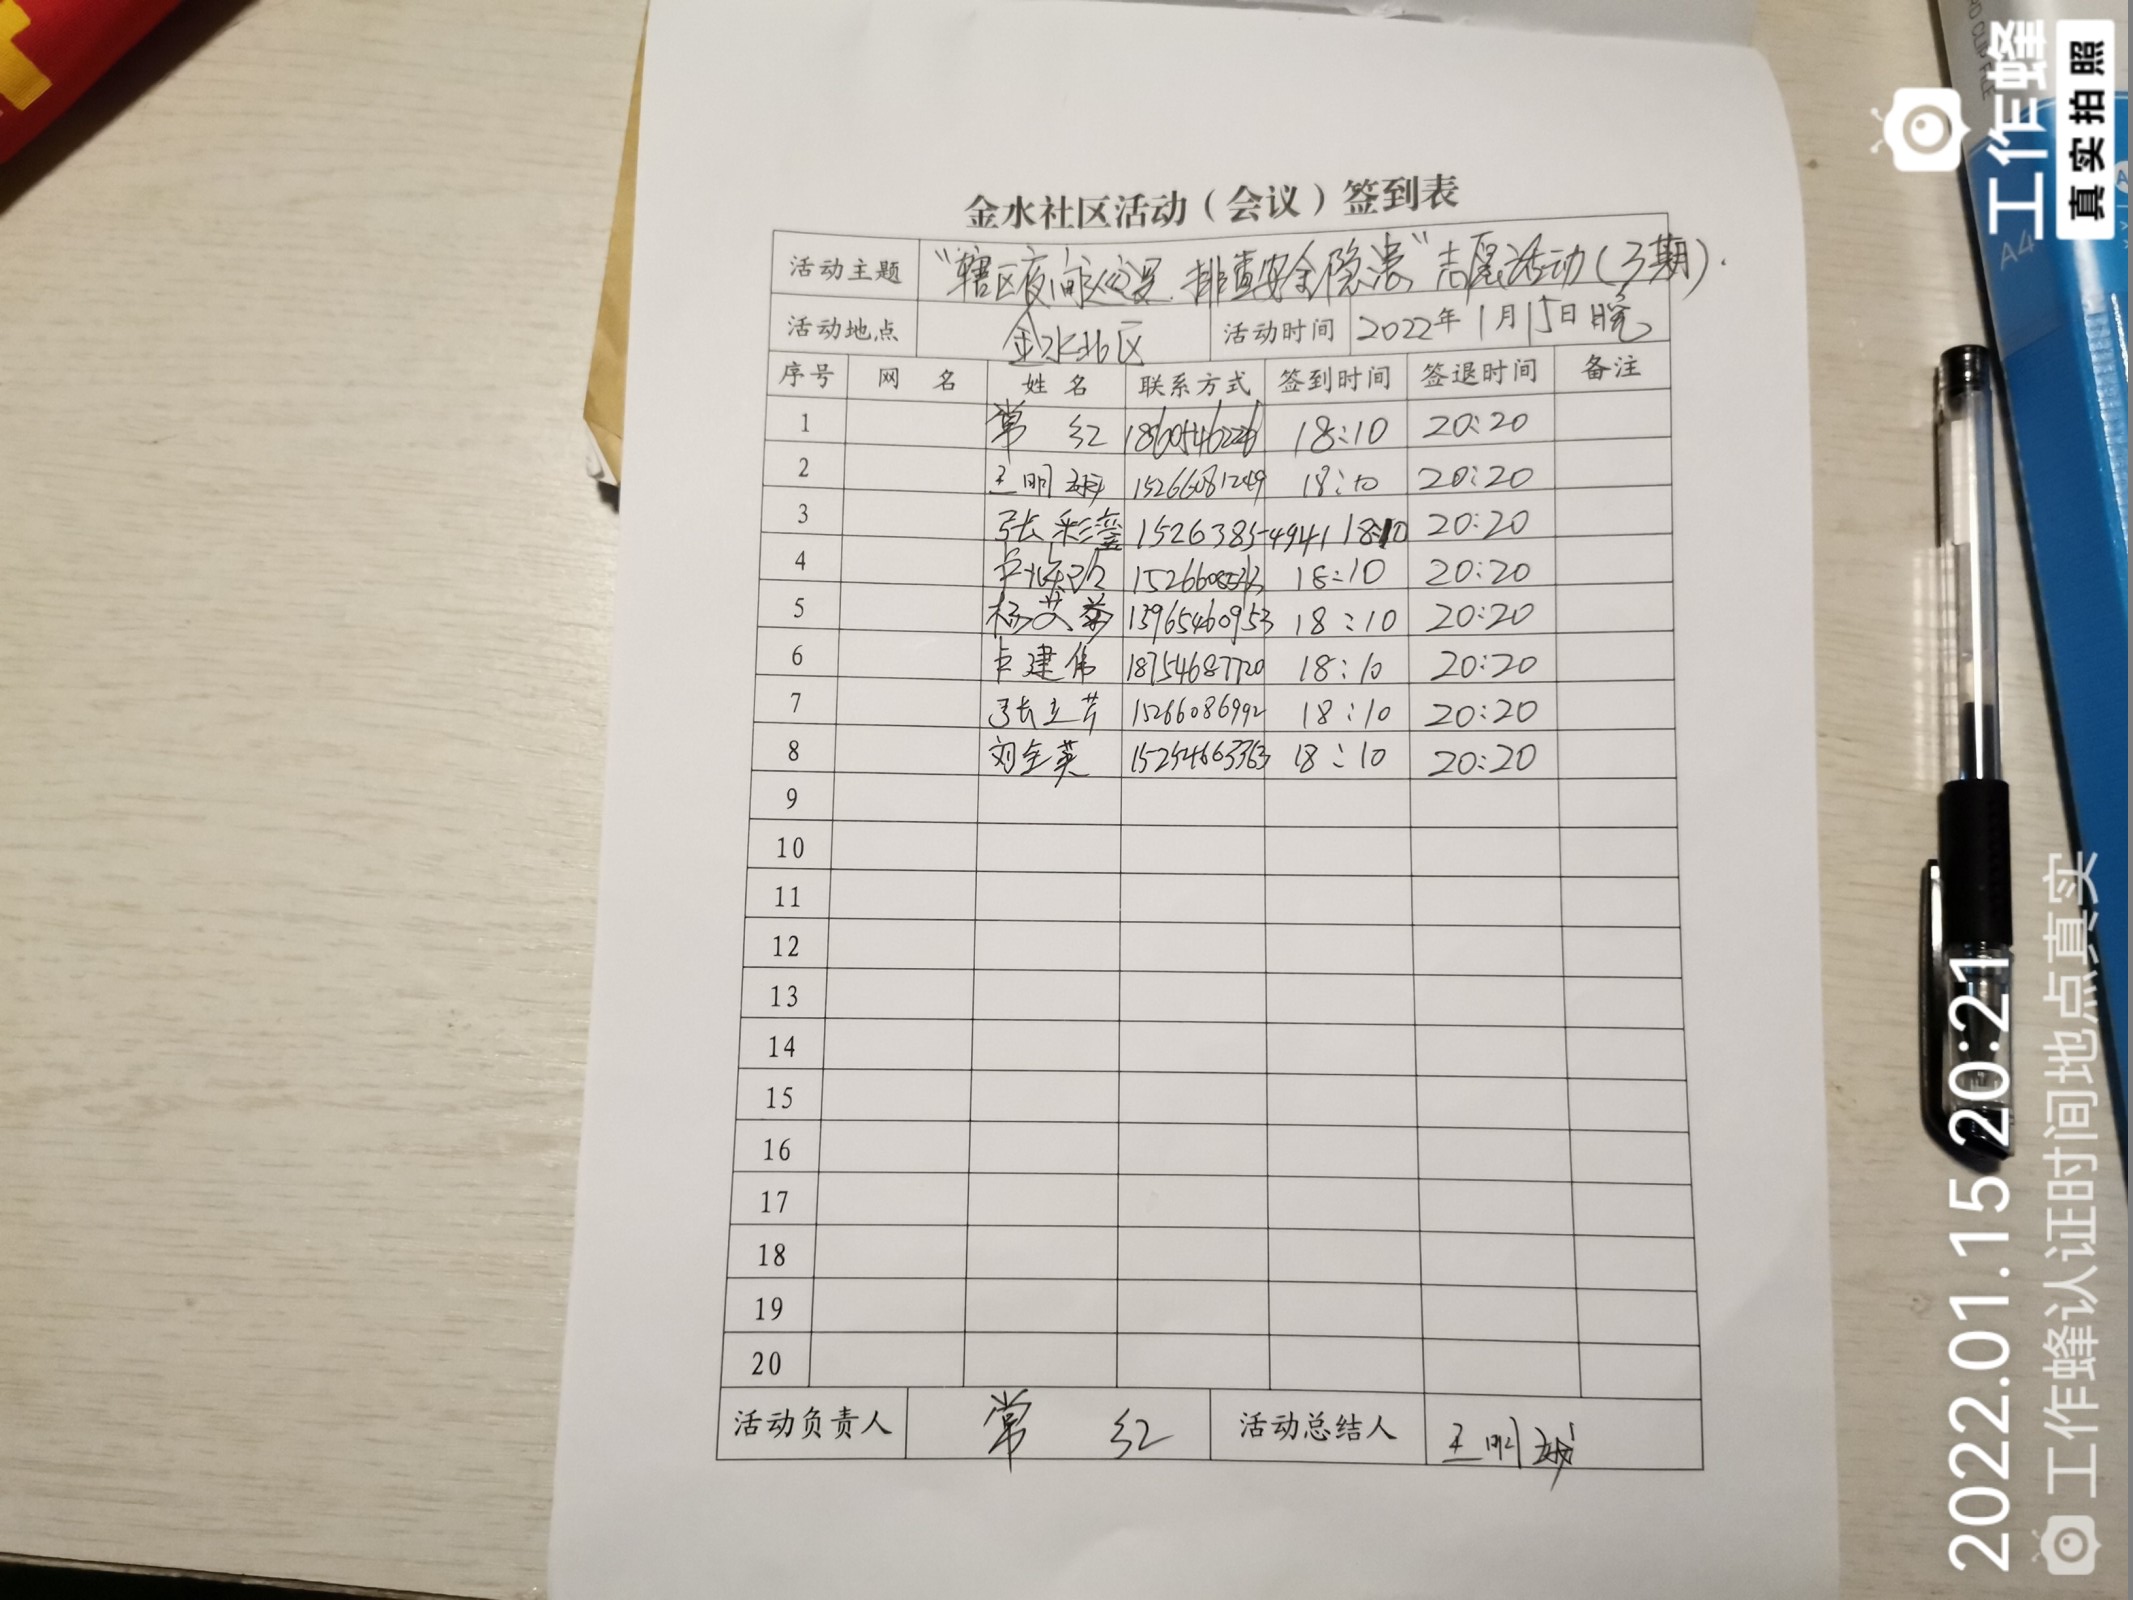 金水社区活动（会议）签到表
活动主题 “辖区夜间巡逻.排查安全隐患”志愿活动(3期).
活动地点 金水北区 活动时间 2022年1月15日晚
序号 网 名 姓 名 联系方式 签到时间 签退时间 备注
1 常 红 18:10 20:20
2 王明 15266081249 18:10 20:20
3 张彩莹 15263854941 18:10 20:20
4 18:10 20:20
5 杨艾菊 13965460953 18:10 20:20
6 卢建伟 18754687720 18:10 20:20
7 张立芹 15266086992 18:10 20:20
8 刘全英 15254663363 18:10 20:20
9
10
11
12
13
14
15
16
17
18
19
20
活动负责人 常 红 活动总结人 王明
工作蜂
真实拍照
2022.01.15 20:21
工作蜂认证时间地点真实
A4